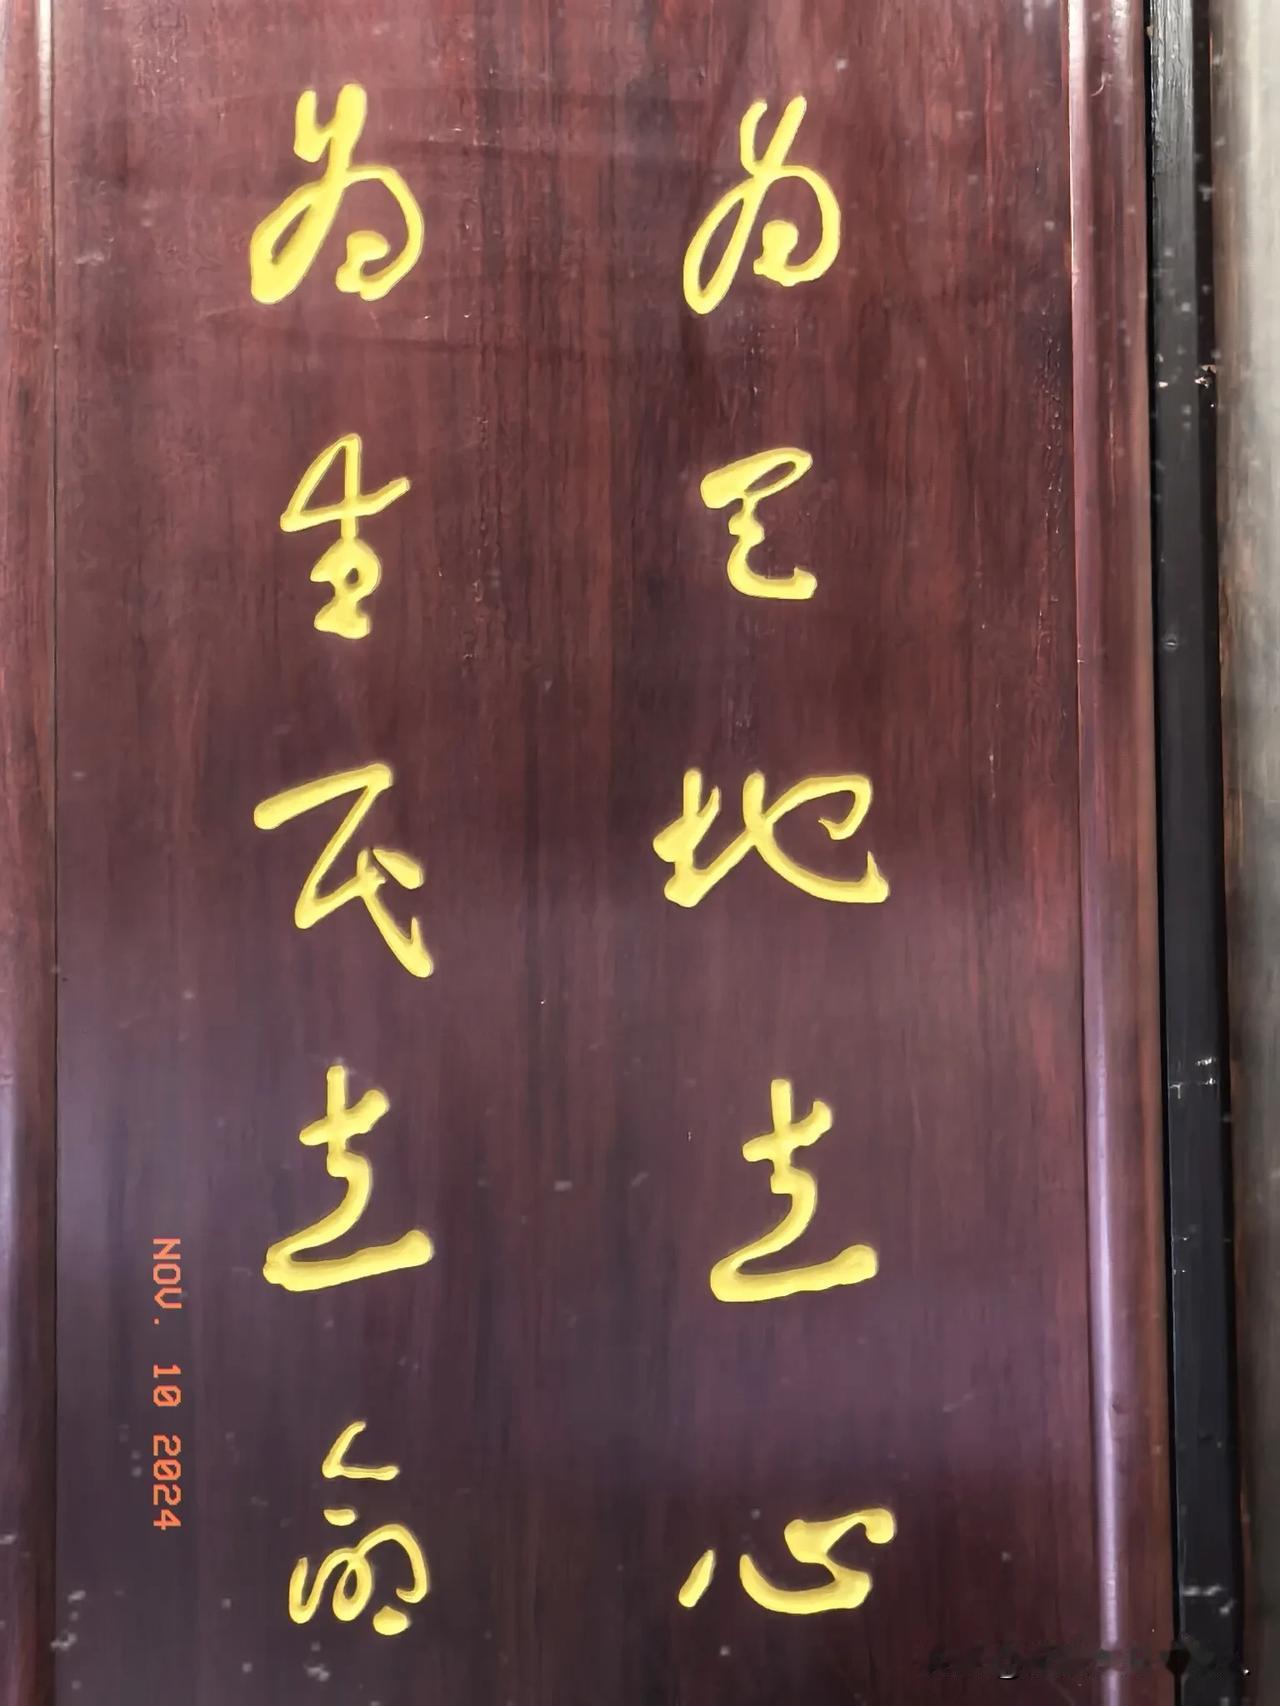 为天地立心
为生民立命
NOV. 10 2024